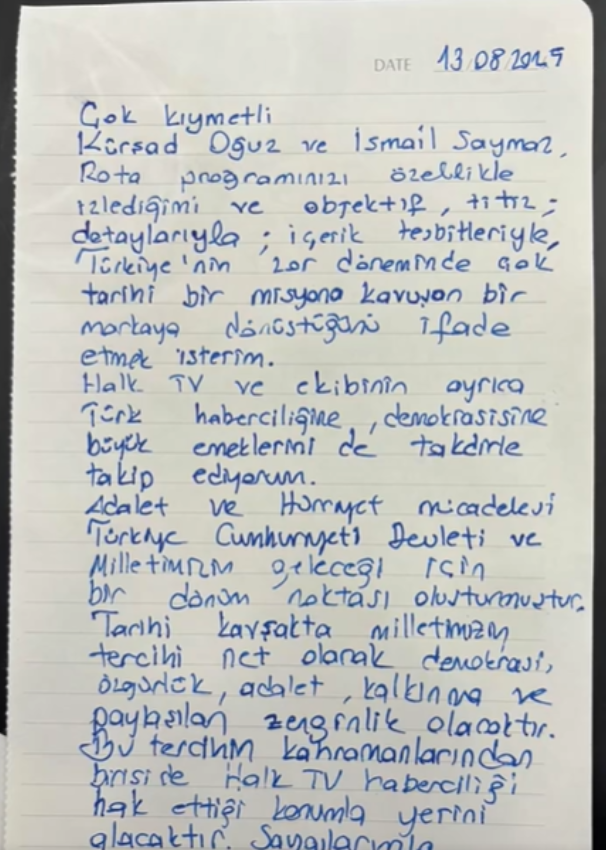 DATE 13/08/2025
Çok kıymetli
Kürşad Oğuz ve İsmail Saymaz,
Rota programınızı özellikle
izlediğimi ve objektif, titiz;
detaylarıyla; içerik tesbitleriyle,
Türkiye'nin zor döneminde çok
tarihi bir misyona kavuşan bir
markaya dönüştüğünü ifade
etmek isterim.
Halk TV ve ekibinin ayrıca
Türk haberciliğine, demokrasisine
büyük emeklerini de takdirle
takip ediyorum.
Adalet ve Hürriyet mücadelesi
Türkiye Cumhuriyeti Devleti ve
Milletimizin geleceği için
bir dönüm noktası oluşturmuştur.
Tarihi kavşakta milletimizin
tercihi net olarak demokrasi,
özgürlük, adalet, kalkınma ve
paylaşılan zenginlik olacaktır.
Bu tercihin kahramanlarından
birisi de Halk TV haberciliği
hak ettiği konumla yerini
alacaktır. Saygılarımla